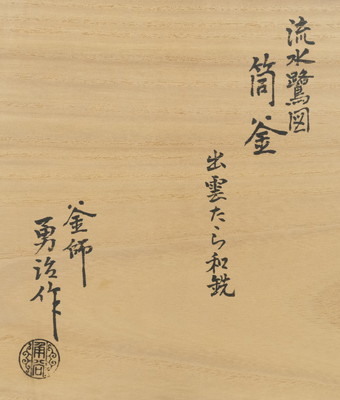 流水鷺図
筒釜
出雲たたら和銑
釜師
勇治作
勇治